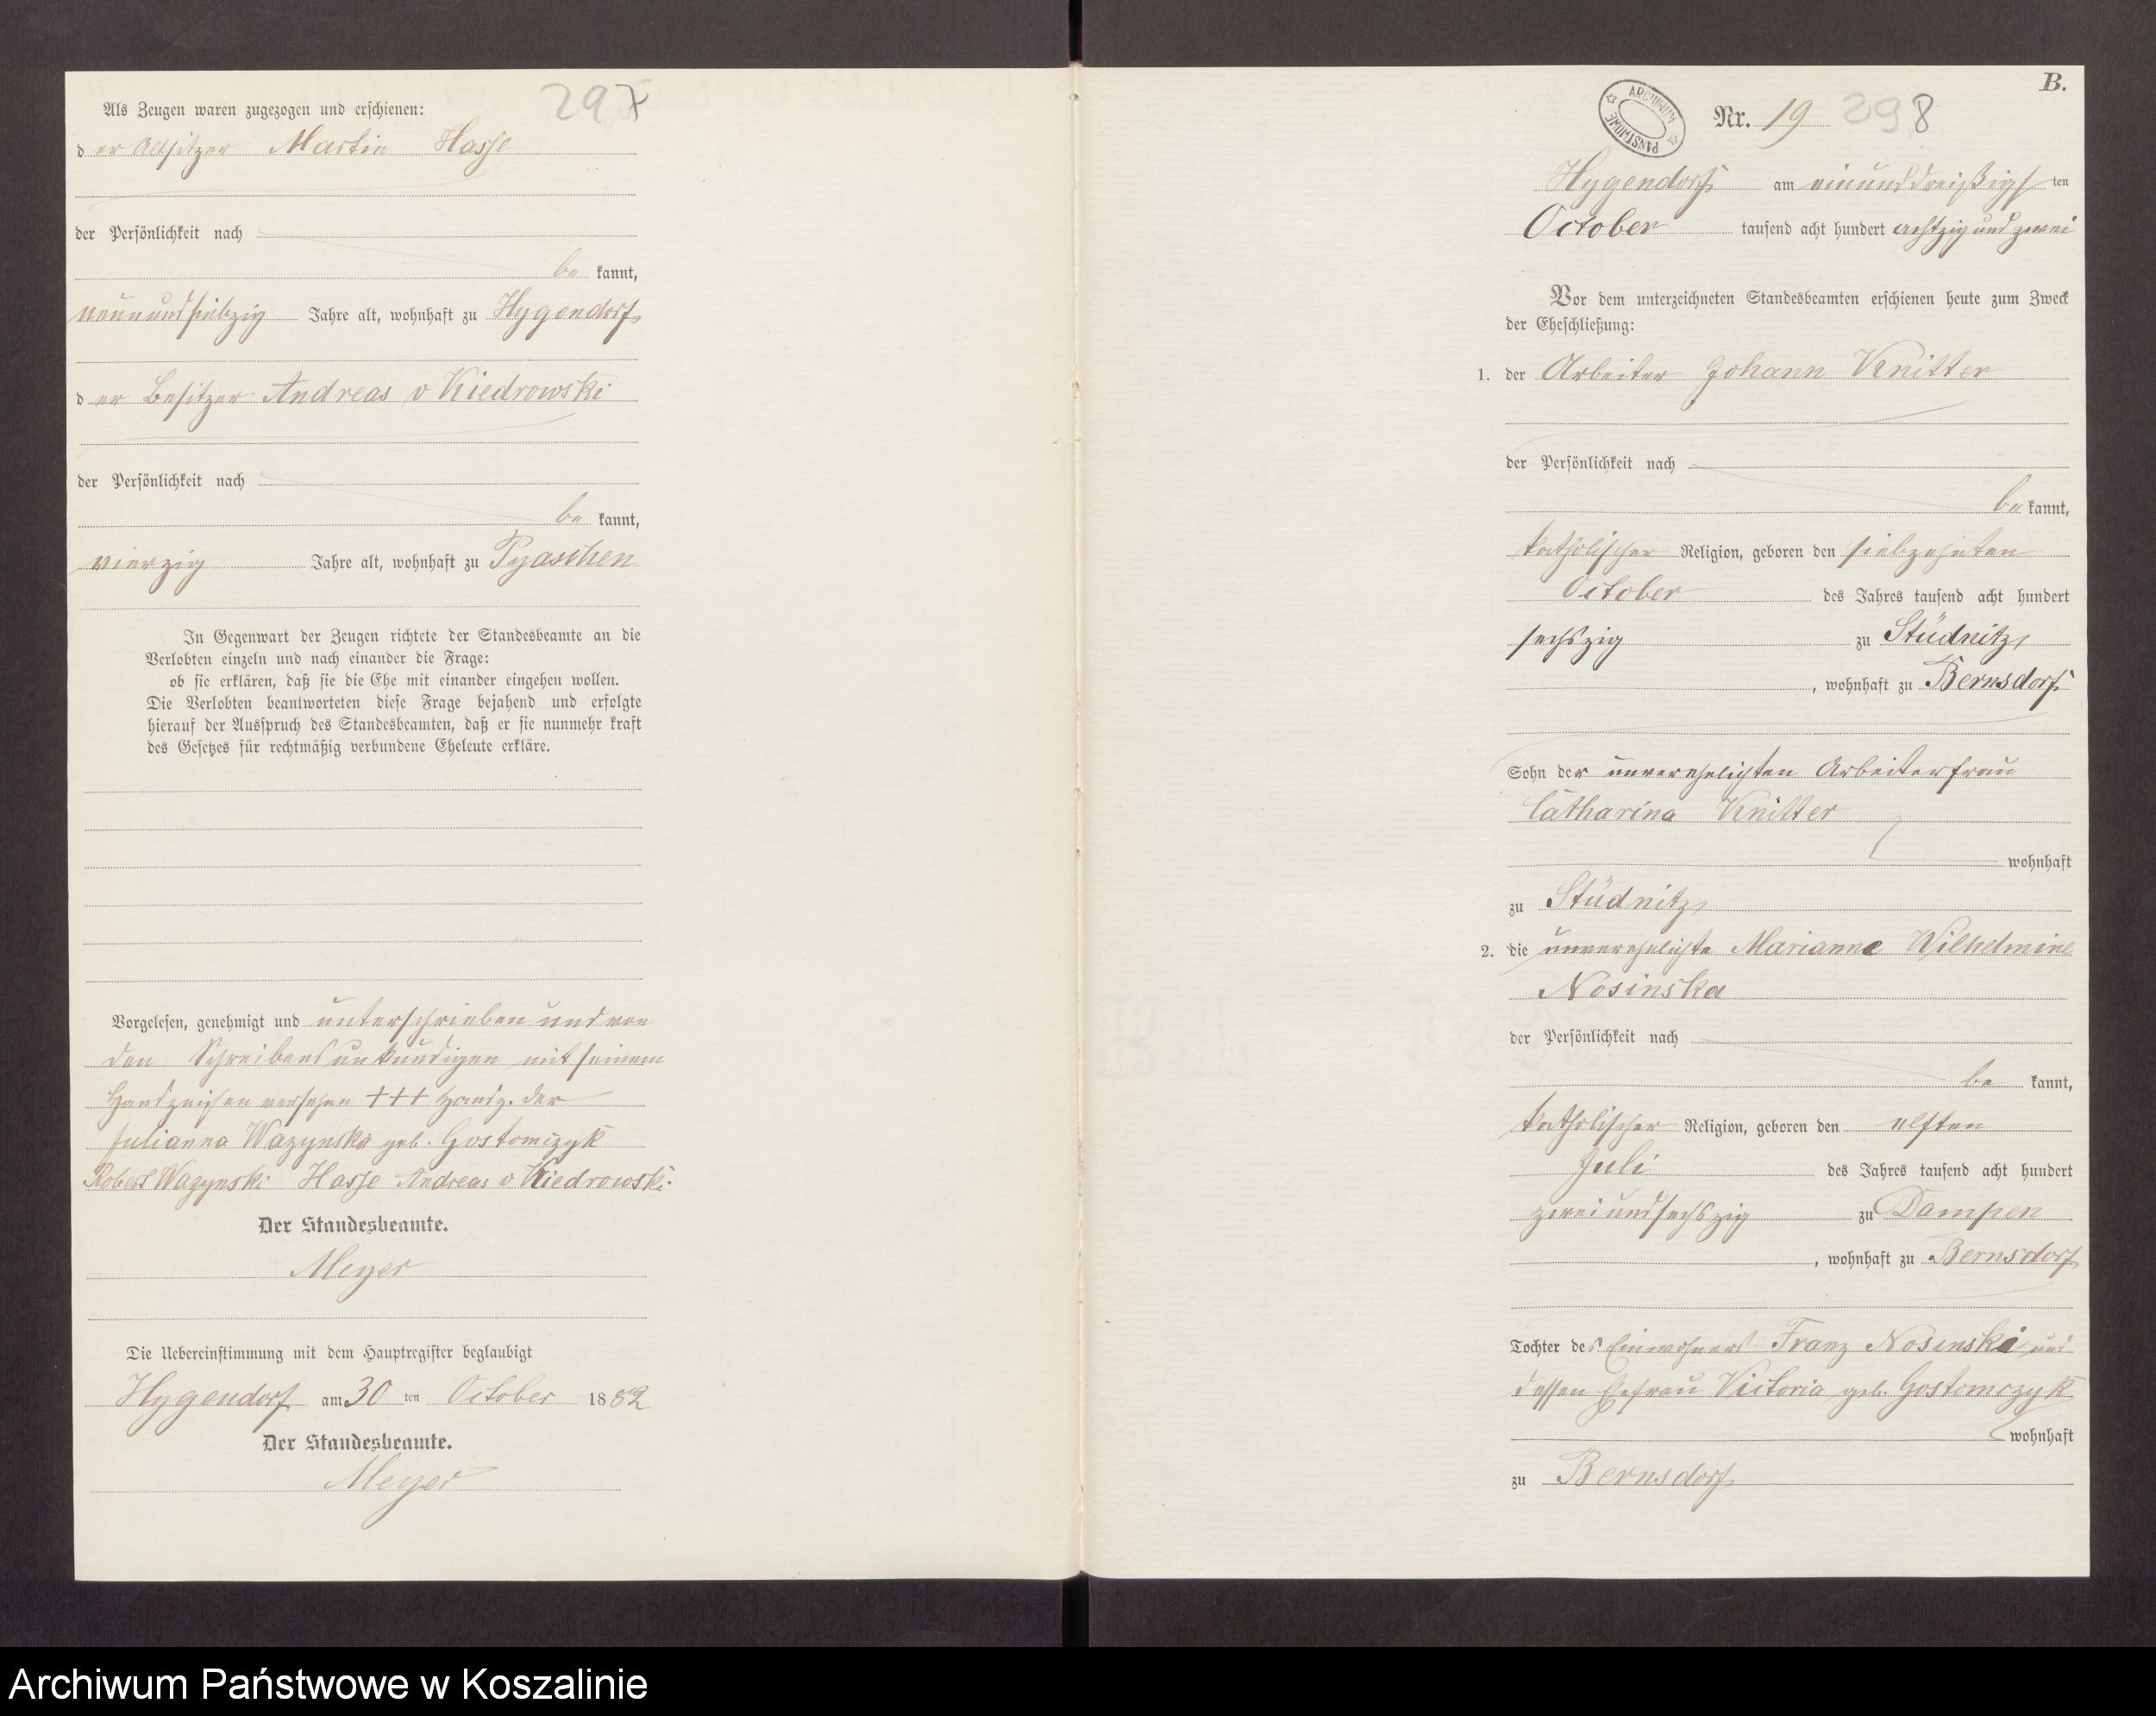 297
Als Zeugen waren zugezogen und erschienen:
der Altsitzer Martin Hasse
der Persönlichkeit nach
be kannt,
neunundsiebzig Jahre alt, wohnhaft zu Hygendorf
der Besitzer Andreas v Kiedrowski
der Persönlichkeit nach
be kannt,
vierzig Jahre alt, wohnhaft zu Pyaschen
In Gegenwart der Zeugen richtete der Standesbeamte an die
Verlobten einzeln und nach einander die Frage:
ob sie erklären, daß sie die Ehe mit einander eingehen wollen.
Die Verlobten beantworteten diese Frage bejahend und erfolgte
hierauf der Ausspruch des Standesbeamten, daß er sie nunmehr kraft
des Gesetzes für rechtmäßig verbundene Eheleute erkläre.
Vorgelesen, genehmigt und unterschrieben und von
den Schreibensunkundigen mit seinem
Handzeichen versehen +++ Handz. der
Julianna Wazynska geb. Gostomczyk
Robert Wazynski Hasse Andreas v Kiedrowski.
Der Standesbeamte.
Meyer
Die Uebereinstimmung mit dem Hauptregister beglaubigt
Hygendorf am 30 ten October 1882
Der Standesbeamte.
Meyer
B.
ARCHIWUM PAŃSTWOWE
Nr. 19 298
Hygendorf am einunddreißigsten
October tausend acht hundert achtzig und zwei
Vor dem unterzeichneten Standesbeamten erschienen heute zum Zweck
der Eheschließung:
1. der Arbeiter Johann Knitter
der Persönlichkeit nach
be kannt,
katholischer Religion, geboren den siebzehnten
October des Jahres tausend acht hundert
sechszig zu Stüdnitz,
, wohnhaft zu Bernsdorf
Sohn der unverehelichten Arbeiterfrau
Catharina Knitter
wohnhaft
zu Stüdnitz
2. die unverehelichte Marianne Wilhelmine
Nosinska
der Persönlichkeit nach
be kannt,
katholischer Religion, geboren den elften
Juli des Jahres tausend acht hundert
zweiundsechszig zu Dampen
, wohnhaft zu Bernsdorf
Tochter des Einwohners Franz Nosinski und
dessen Ehefrau Victoria geb. Gostomczyk
wohnhaft
zu Bernsdorf
Archiwum Państwowe w Koszalinie